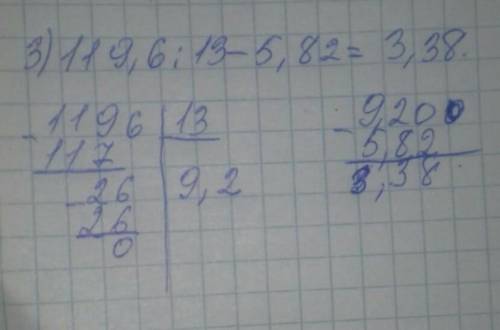 3) 119,6 : 13 - 5,82 = 3,38.
- 1196 | 13
117
- 26 9,2
26
0
- 9,200
5,82
3,38